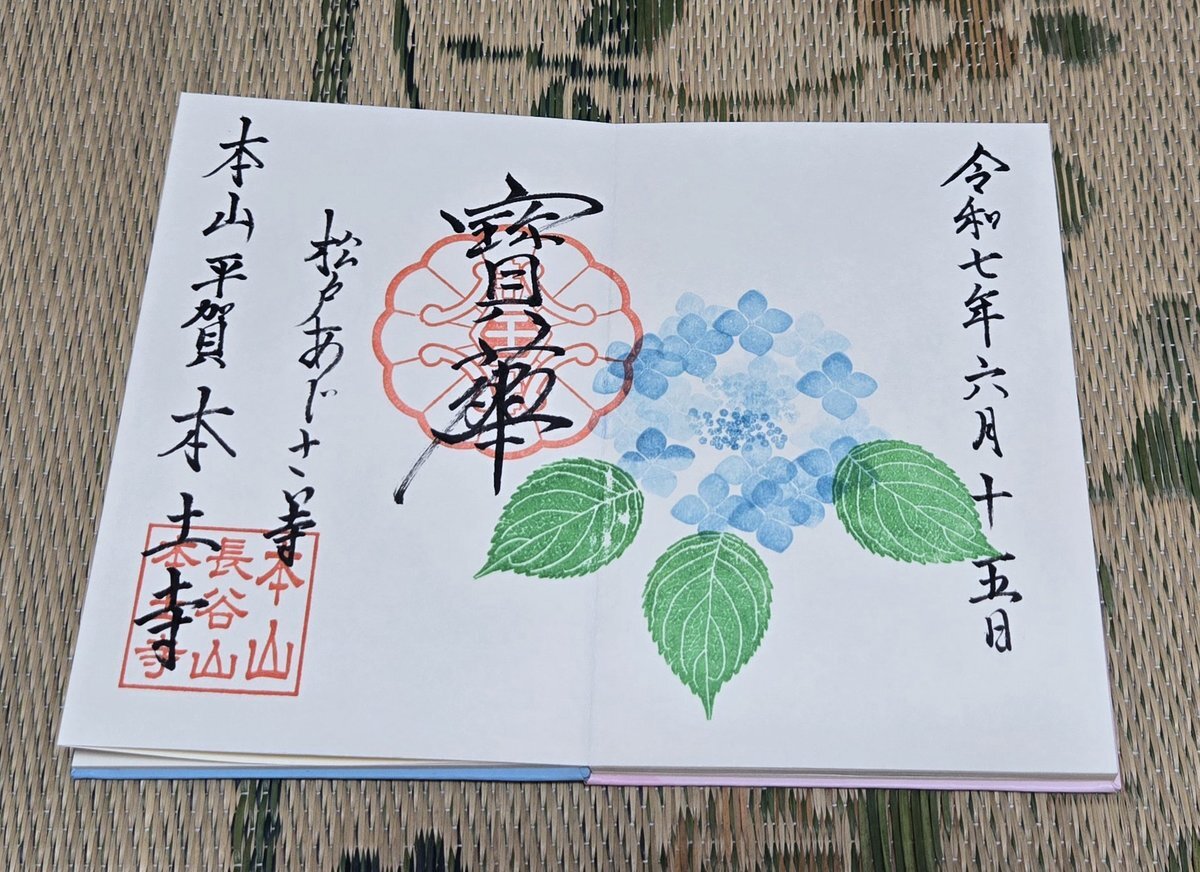 令和七年六月十五日
寶華
松戸あじさい寺
本山平賀本土寺
本山
長谷山
本土寺